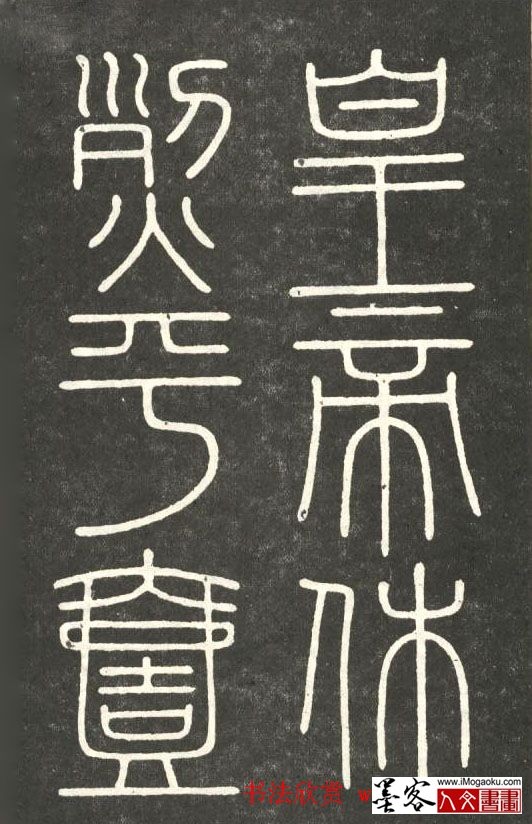 皇帝休
烈平壹
书法欣赏 w
墨客
www.iMogaoku.com
人文書畫